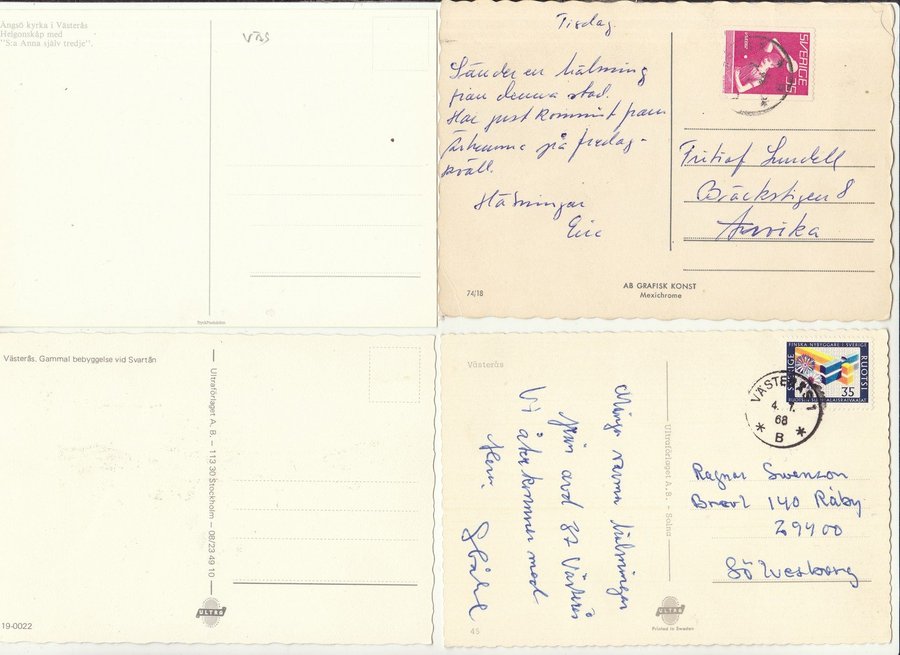 Ängsö kyrka i Västerås
Helgonskåp med
"S:a Anna själv tredje".
VÄS
Tisdag.
Sänder en hälsning
från denna stad.
Har just kommit fram
på fredag-
kväll.
Hälsningar
Eric
SVERIGE 35
Fritiof Lundell
Bräckstigen 8
Arvika
74/18
AB GRAFISK KONST
Mexichrome
Västerås, Gammal bebyggelse vid Svartån
Ultraförlaget A. B. – 113 30 Stockholm – 08/23 49 10
ULTRA
19-0022
Västerås
Många varma hälsningar
från avd 87 Västerås
Vi återkommer med
brev.
Ultraförlaget A.B. - Solna
FINSKA NYBYGGARE I SVERIGE
SVERIGE
RUOTSI
35
VÄSTERÅS 1
4. 1.
68
* B *
Ragnar Swenson
Brevl 140 Råby
29400
Sölvesborg
ULTRA
Printed in Sweden
45